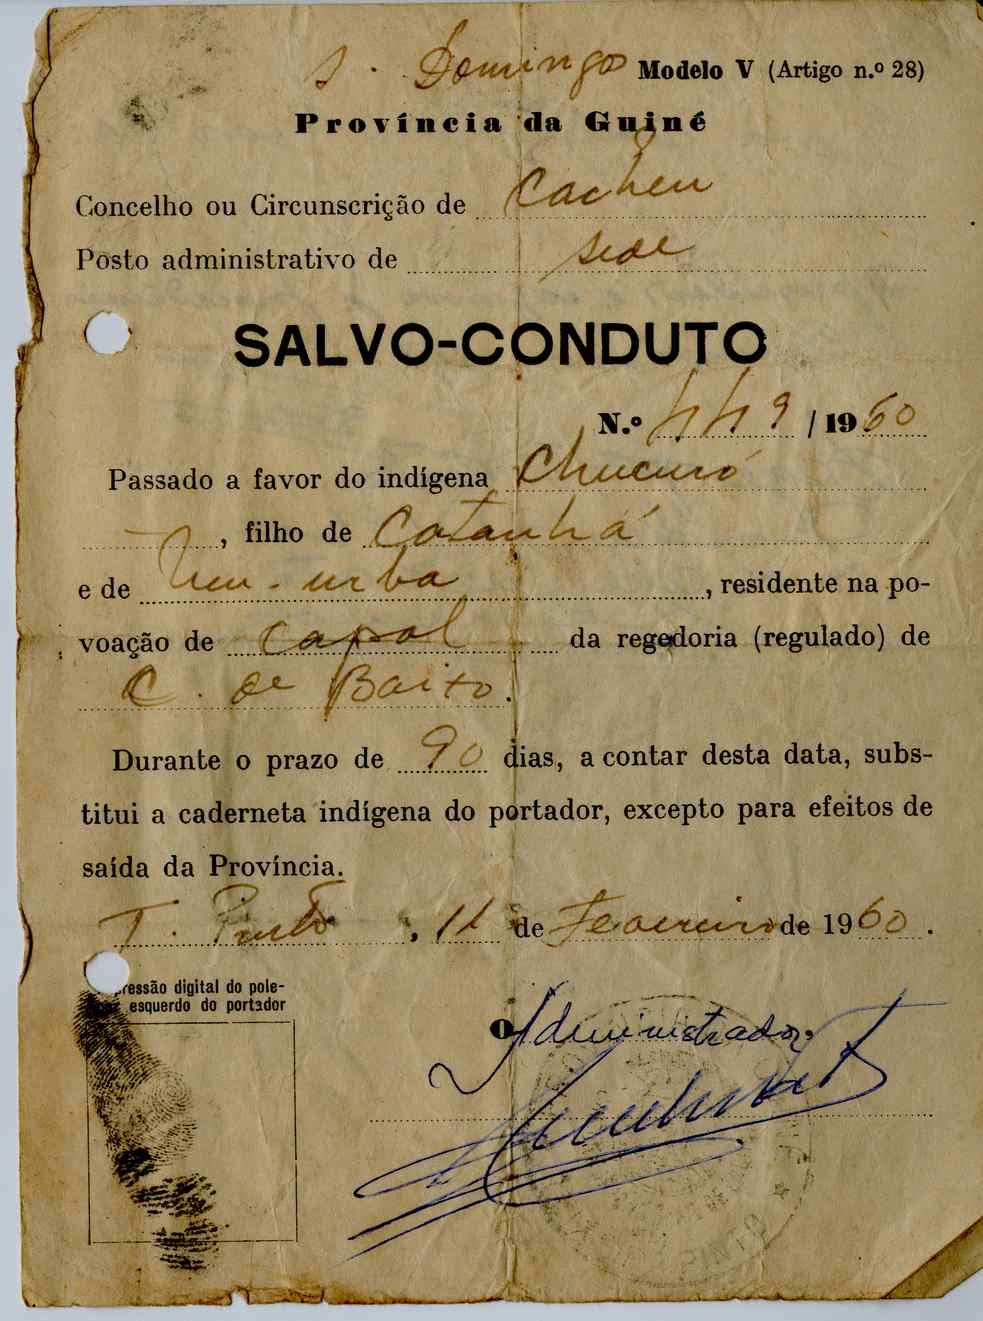 S. Domingo Modelo V (Artigo n.º 28)
Província da Guiné
Concelho ou Circunscrição de Cacheu
Posto administrativo de sede
SALVO-CONDUTO
N.º 449 / 1960
Passado a favor do indígena Chucuró
, filho de Catanhá
e de , residente na po-
voação de Capol da regedoria (regulado) de
C. de Baixo.
Durante o prazo de 90 dias, a contar desta data, subs-
titui a caderneta indígena do portador, excepto para efeitos de
saída da Província.
T. Pinto, 11 de Fevereiro de 1960.
pressão digital do pole-
esquerdo do portador
O Administrador,